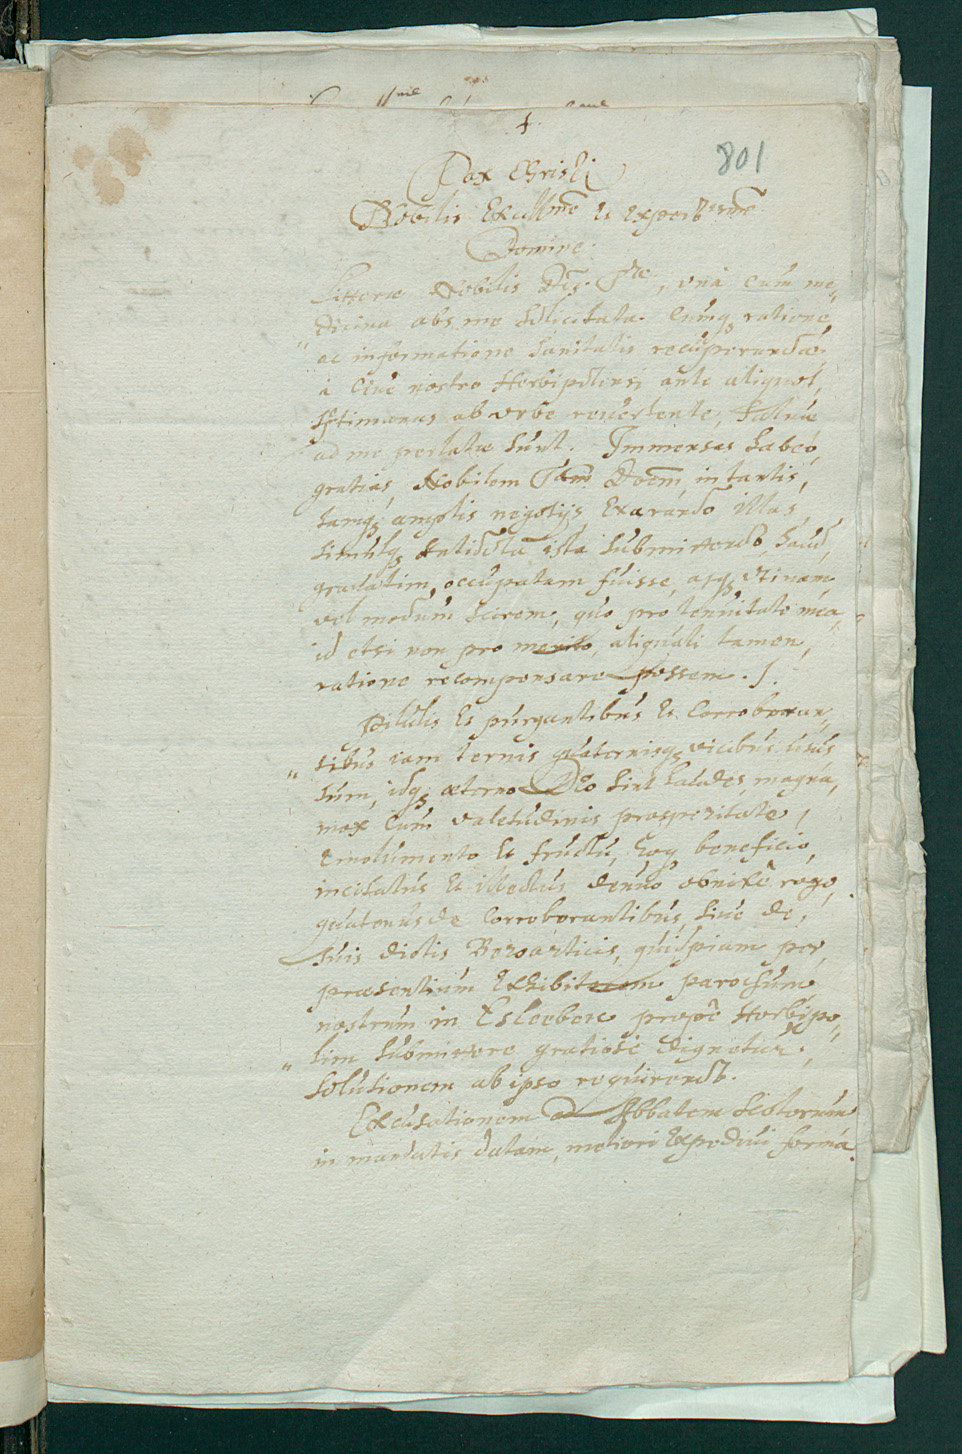 †.
801
Pax Christi
Nobilis Excell:me et Experts:me
Domine.
Litterae Nobilis D.is T.rae, unà cum me„
„dicina abs me sollicitata cumq; ratione,
ac informatione sanitatis recuperandae,
à cive nostro Herbipolensi ante aliquot,
septimanas ab urbe revertente, salvae
ad me perlatae sunt. Immensas habeo,
gratias, Nobilem Tam Doem in tantis,
tamq; amplis negotijs exarando illas,
simulq; antidota ista submittendo, haud,
gravatim occupatam fuisse, atq; utinam,
vel modum scirem, quo pro tenuitate mea,
id etsi non pro merito, aliquali tamen,
ratione recompensare possem ./.
Pilulis et purgantibus et corroboran„
„tibus iam ternis quaternisq; vicibus usus
sum, idq; aeterno Deo sint laudes, magna,
mox cum valetudinis prosperitate,
emolumento et fructu, hoq; beneficio,
incitatus et illectus denuo obnixè rogo,
quatenus de corroborantibus, sive de,
suis dictis Bezoarticis, quispiam per,
praesentium exhibitorem parochum
nostrum in Esleeben prope Herbipo„
„lim submittere gratiosè dignetur,
solutionem ab ipso requirendo.
Excusationem ad Abbatem Scotorum
in mandatis datam, meliori expedivi formâ.